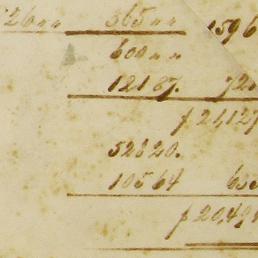 26 „ „ 365 „ „ 1596
600 „ „
121 87. 72
f 24,127
528 20.
105 64 63
f 20,49